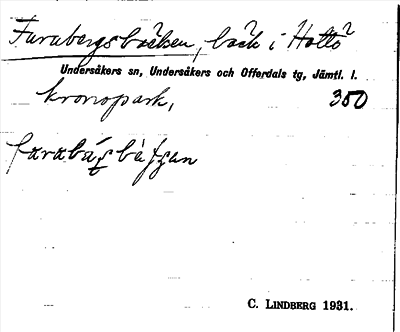 Furubergsbäcken, bäck i Hottö
Undersåkers sn, Undersåkers och Offerdals tg, Jämtl. l.
kronopark, 350
C. LINDBERG 1931.